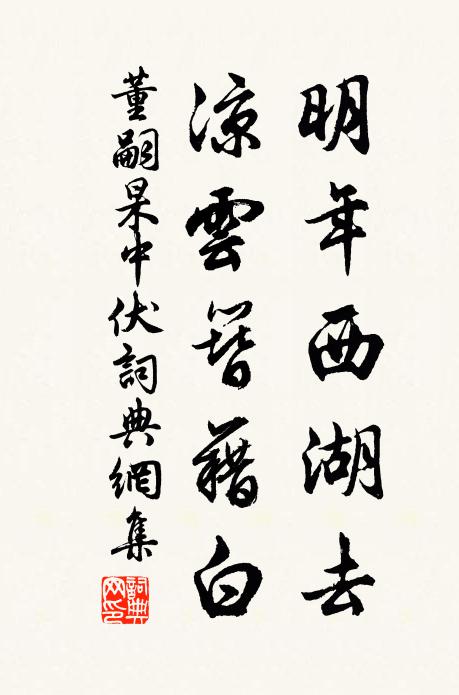 明年西湖去
涼雲簪藉白
董嗣杲中伏詞典網集
詞典網印